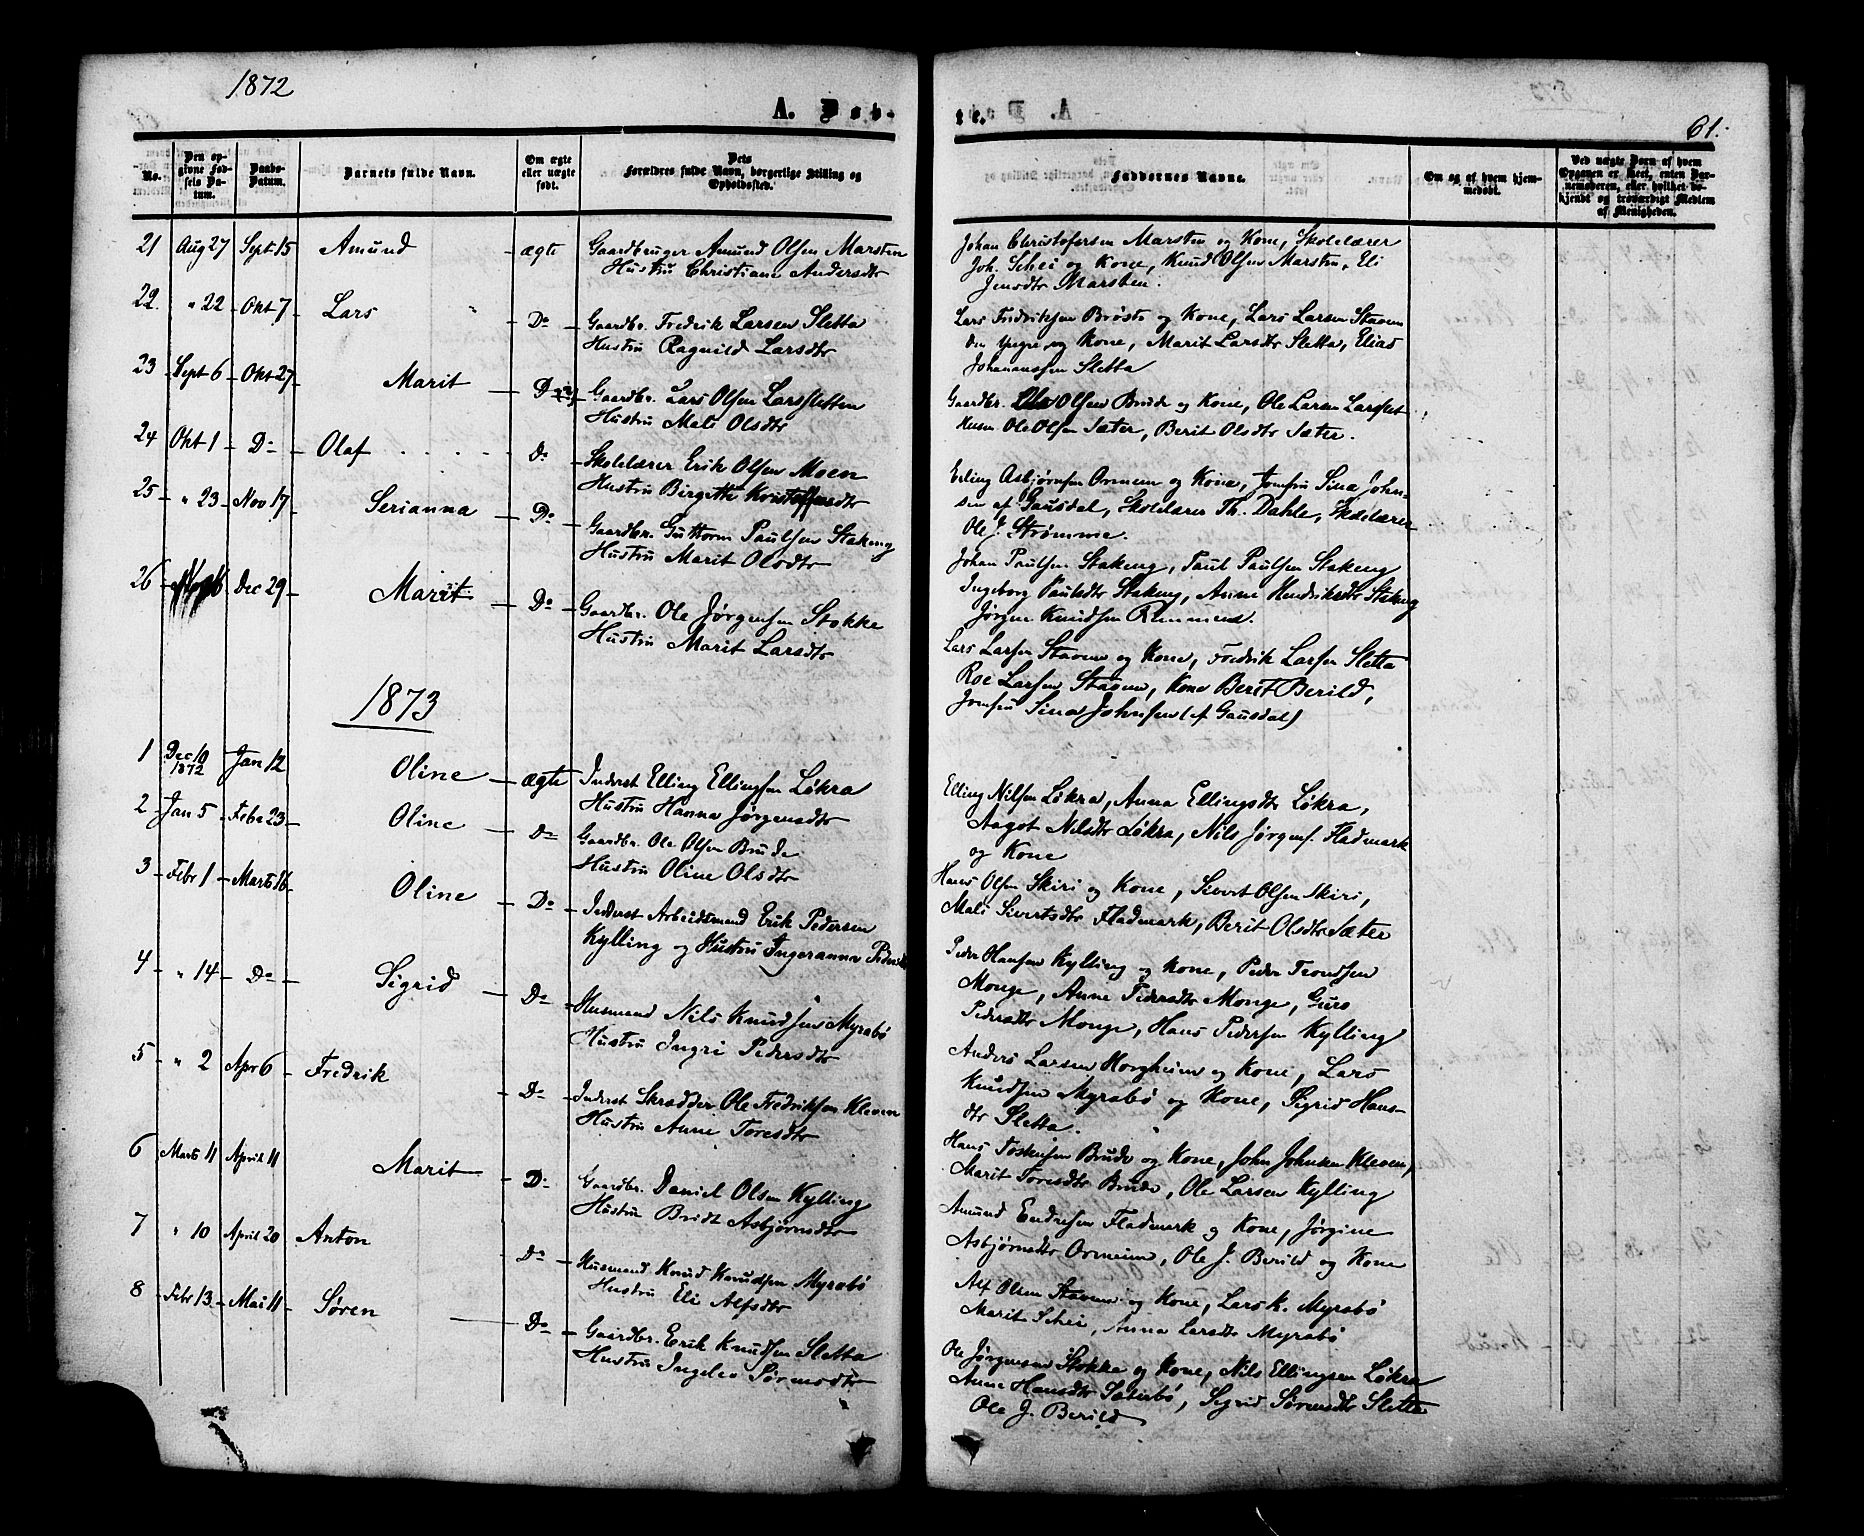 1872
A. Døb-
te.
61.
No.
Den opgivne Fødsels Datum.
Daabs-Datum.
Barnets fulde Navn.
Om ægte eller uægte født.
Dets Forældres fulde Navn, borgerlige Stilling og Opholdssted.
Faddernes Navne.
Om og af hvem hjemmedøbt.
Ved uægte Børn af hvem Opgaven er skeet, enten Barnemoderen, eller hvilket bekjendt og troværdigt Medlem af Menigheden.
21 Aug 27 Sept 15 Amund ægte Gaardbruger Amund Olsen Marsten
Hustru Christiane Andersdtr
Johan Christofersen Marsten og Kone, Skolelærer
Joh. Schei og Kone, Knud Olsen Marsten, Eli
Jensdtr Marsten.
22. " 22 Okt 7 Lars Do Gaardbr. Fredrik Larsen Sletta
Hustru Ragnild Larsdtr
Lars Fredriksen Brøste og Kone, Lars Larsen Staven
den yngre og Kone, Marit Larsdtr Sletta, Elias
Johanessen Sletta
23 Sept 6 Okt 27 Marit Do Gaardbr. Lars Olsen Larssletten
Hustru Mali Olsdtr
Gaardbr. Ole Olsen Brude og Kone, Ole Larsen Larsslet
Husm Ole Olsen Sæter, Berit Olsdtr Sæter.
24 Okt 1 Do Olaf Do Skolelærer Erik Olsen Moen
Hustru Birgitte Kristoffersdtr
Erling Asbjørnsen Ormem og Kone, Jomfru Sina John-
sen af Gausdal, Skolelærer Th. Dahle, Skolelærer
Ole J. Strømme.
25 " 23 Nov 17 Serianna Do Gaardbr. Guttorm Paulsen Stakeng
Hustru Marit Olsdtr
Johan Paulsen Stakeng, Paul Paulsen Stakeng
Ingeborg Paulsdtr Stakeng, Anne Hendriksdtr Stakeng
Jørgen Knudsen Remmem.
26 Dec 29 Marit Do Gaardbr. Ole Jørgensen Stokke
Hustru Marit Larsdtr
Lars Larsen Staven og Kone, Fredrik Larsen Sletta
Roe Larsen Staven, Kone Berit Berild,
Jomfru Sina Johnsen (af Gausdal)
1873
1 Dec 10 1872 Jan 12 Oline ægte Inderst Elling Ellingsen Løkra
Hustru Hanna Jørgensdtr
Elling Nilsen Løkra, Anna Ellingsdtr Løkra,
Aagot Nilsdtr Løkra, Nils Jørgens. Fladmark
og Kone
2 Jan 5 Febr 23 Oline Do Gaardbr. Ole Olsen Brude
Hustru Oline Olsdtr
Hans Olsen Skiri og Kone, Sivert Olsen Skiri,
Mali Sivertsdtr Fladmark, Berit Olsdtr Sæter
3 Febr 1 Marts 16 Oline Do Inderst Arbeidsmand Erik Pedersen
Kylling og Hustru Ingeranna Pedersdtr
Peder Hansen Kylling og Kone, Peder Trondsen
Monge, Anne Pedersdtr Monge, Guro
Pedersdtr Monge, Hans Pedersen Kylling
4 " 14 Do Sigrid Do Husmand Nils Knudsen Myrabø
Hustru Ingri Pedersdtr
Anders Larsen Horgheim og Kone, Lars
Knudsen Myrabø og Kone, Sigrid Hans-
dtr Sletta.
5 " 2 Apr 6 Fredrik Do Inderst Skrædder Ole Fredriksen Kleven
Hustru Anne Toresdtr
Hans Tostensen Brude og Kone, John Johnsen Kleven,
Marit Toresdtr Brude, Ole Larsen Kylling
6 Marts 11 April 11 Marit Do Gaardbr. Daniel Olsen Kylling
Hustru Bridt Asbjørnsdtr
Amund Endresen Fladmark og Kone, Jørgine
Asbjørnsdtr Ormeim, Ole J. Berild og Kone
7 " 10 April 20 Anton Do Husmand Knud Knudsen Myrabø
Hustru Eli Alfsdtr
Alf Olsen Staven og Kone, Lars K. Myrabø
Marit Schei, Anna Larsdtr Myrabø
8 Febr 13 Mai 11 Søren Do Gaardbr. Erik Knudsen Sletta
Hustru Ingeleo Sørensdtr
Ole Jørgensen Stokke og Kone, Nils Ellingsen Løkra
Anne Hansdtr Sæterbø, Sigrid Sørensdtr Sletta
Ole J. Berild